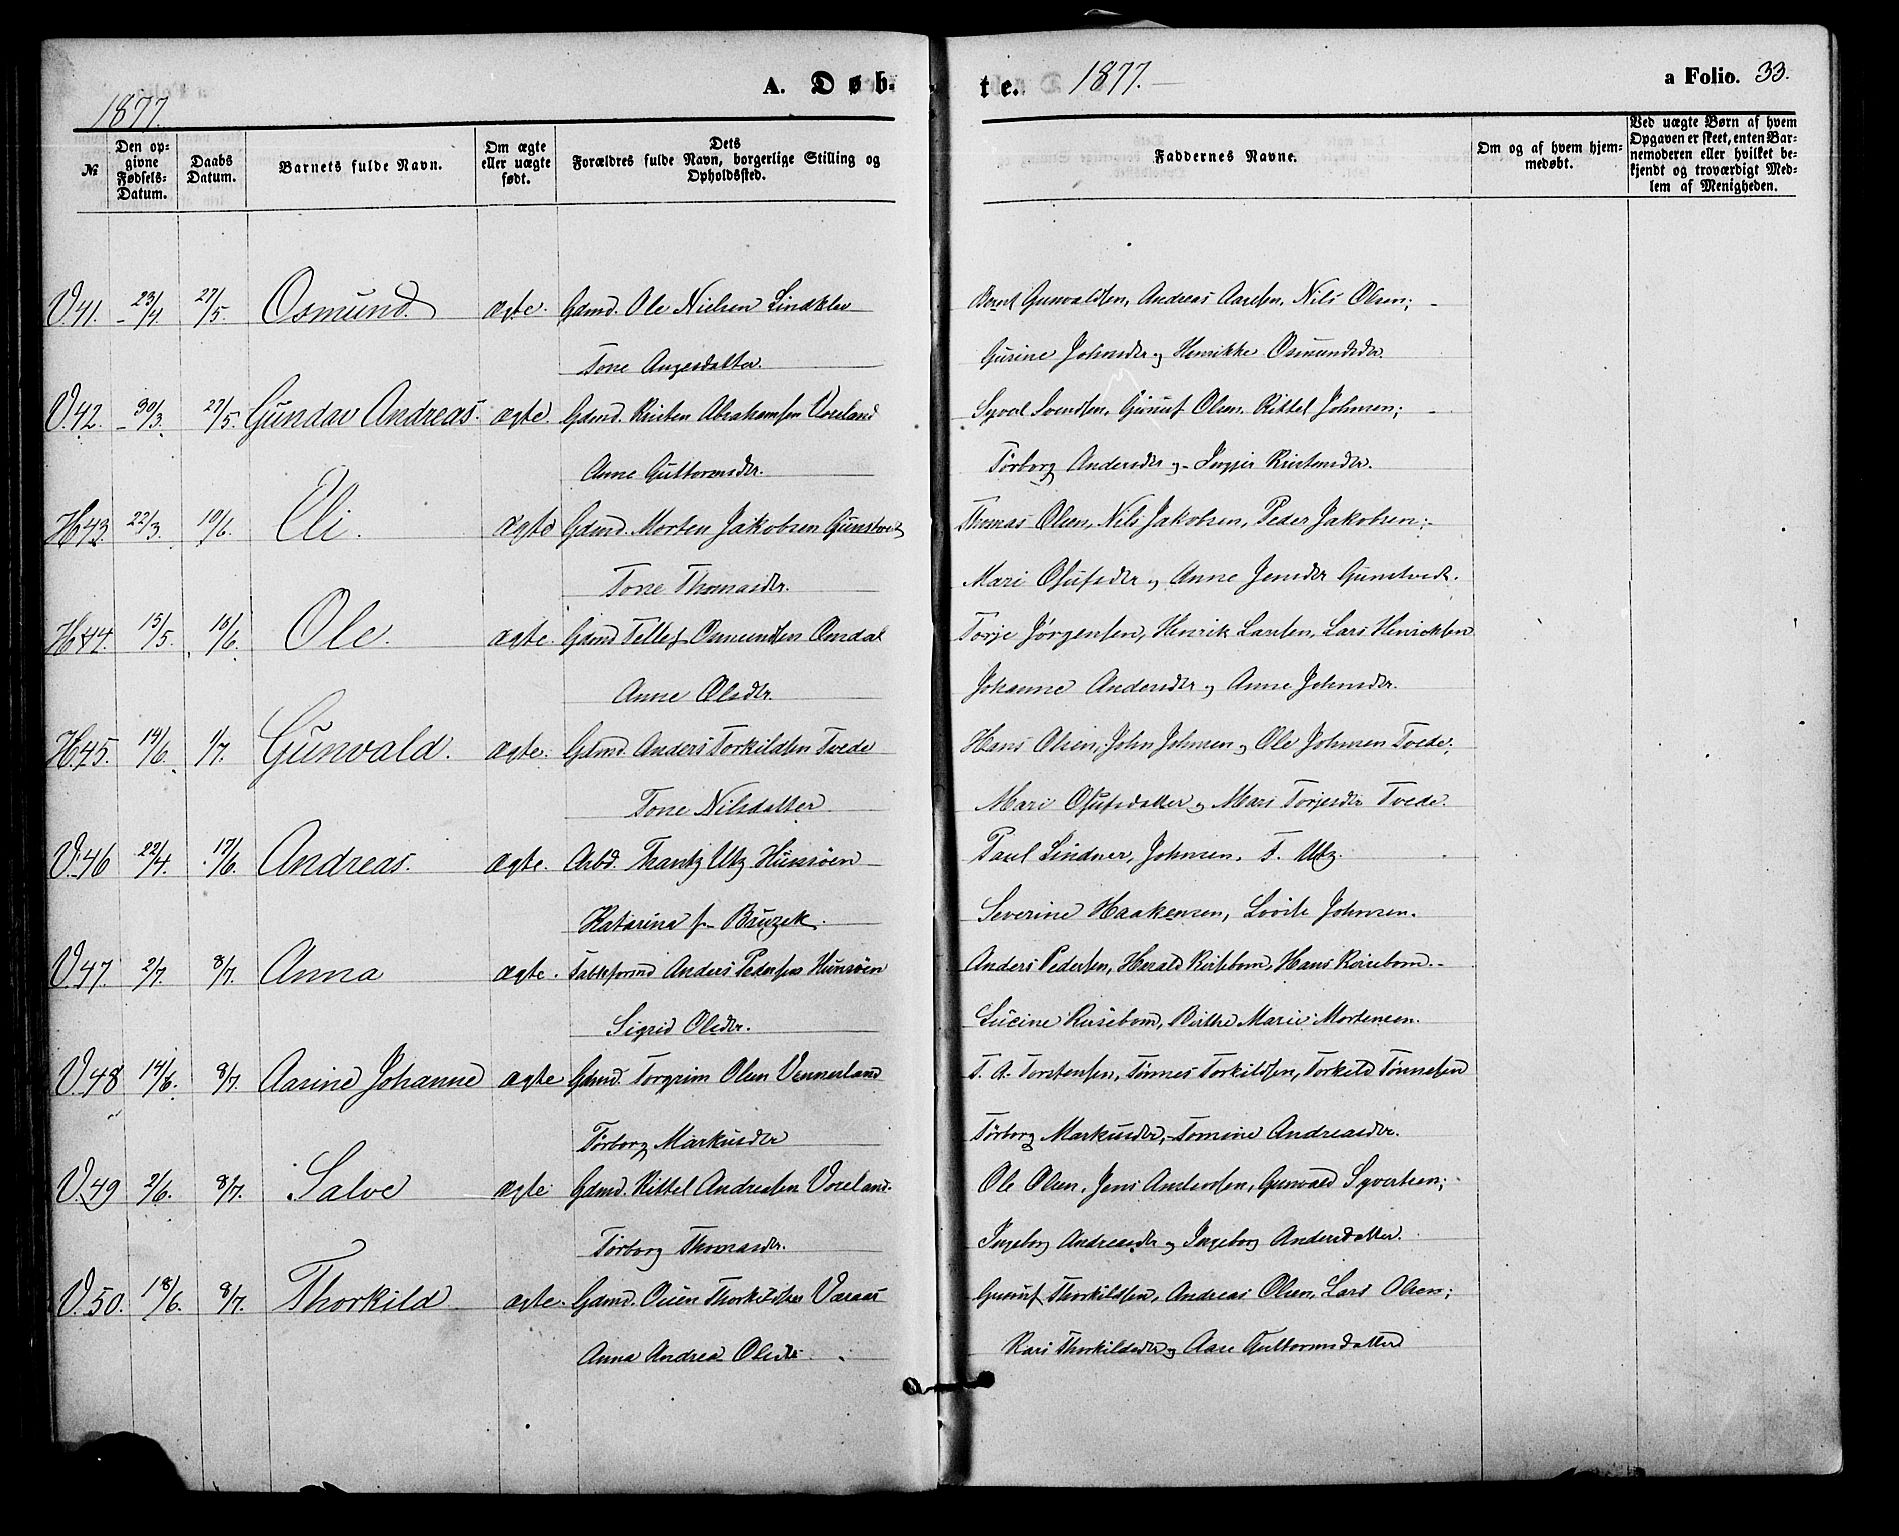 A. Døb-
te.
1877.
a Folio. 33.
1877.
№
Den op-
givne
Fødsels-
Datum.
Daabs
Datum.
Barnets fulde Navn.
Om ægte
eller uægte
født.
Dets
Forældres fulde Navn, borgerlige Stilling og
Opholdssted.
Faddernes Navne.
Om og af hvem hjem-
medøbt.
Ved uægte Børn af hvem
Opgaven er skeet, enten Bar-
nemoderen eller hvilket be-
kjendt og troværdigt Med-
lem af Menigheden.
V.41. 23/4. 27/5. Osmund. ægte. Gdmd. Ole Nielsen Lindklev
Gunvaldsen, Andreas Aasen, Nils Olsen;
Tone Aagesdatter.
Gurine Johnsdr og Henrikke Osmundsdr
V.42. 30/3. 27/5. Gundar Andreas. ægte. Gdmd. Kristen Abrahamsen Voreland
Syvert Svendsen, Gunuf Olsen, Kittel Johnsen;
Anne Guttormsdr.
Torborg Andersdr og Ingjer Kristensdr.
H43. 22/3. 10/6. Eli. ægte Gdmd. Morten Jakobsen Gunstvedt
Thomas Olsen, Nils Jakobsen, Peder Jakobsen;
Tone Thomasdr.
Mari Osufsdr og Anne Jensdr Gunstvedt.
H44. 15/5. 10/6. Ole. ægte. Gdmd Tellef Osmundsen Omdal
Torje Jørgensen, Henrik Larsen, Lars Henriksen
Anne Olsdr.
Johanne Andersdr og Anne Johnsdr.
H.45. 14/6. 1/7. Gunvald. ægte. Gdmd. Anders Torkildsen Tvede
Hans Olsen, John Johnsen og Ole Johnsen Tvede;
Tone Nilsdatter
Mari Osufsdatter og Mari Torjesdr Tvede.
V.46 22/4. 17/6. Andreas. ægte. Arbd. Frantz Utz Hunsøen
Paul Lindner, Johnsen, F. Utz.
Katarina f. Bruzek.
Severine Haakensen, Lovise Johnsen.
V.47. 2/7. 8/7. Anna ægte. Fabkformd Anders Pedersen Hunsøen
Anders Pedersen, Harald Reisebom, Hans Reisebom.
Sigrid Olsdr.
Lucine Reisebom, Birthe Marie Mortensen.
V.48 14/6. 8/7. Aasine Johanne ægte Gdmd. Torgrim Olsen Vennerland
T. A. Torstensen, Tønnes Torkildsen, Torkild Tønnesen
Torborg Markusdr
Torborg Markusdr, Tomine Andreasdr.
V.49 2/6. 8/7. Salve ægte Gdmd. Kittel Andreasen Voreland.
Ole Olsen, Jens Andersen, Gunvald Syvertsen;
Torborg Thomasdr.
Ingeborg Andreasdr og Ingeborg Andersdatter.
V.50. 18/6. 8/7. Thorkild ægte. Gdmd. Ouen Thorkildsen Vaaras
Gunuf Thorkildsen, Andreas Olsen, Lars Olsen;
Anna Andrea Olsdr.
Kari Thorkildsdr og Aase Guttormsdatter